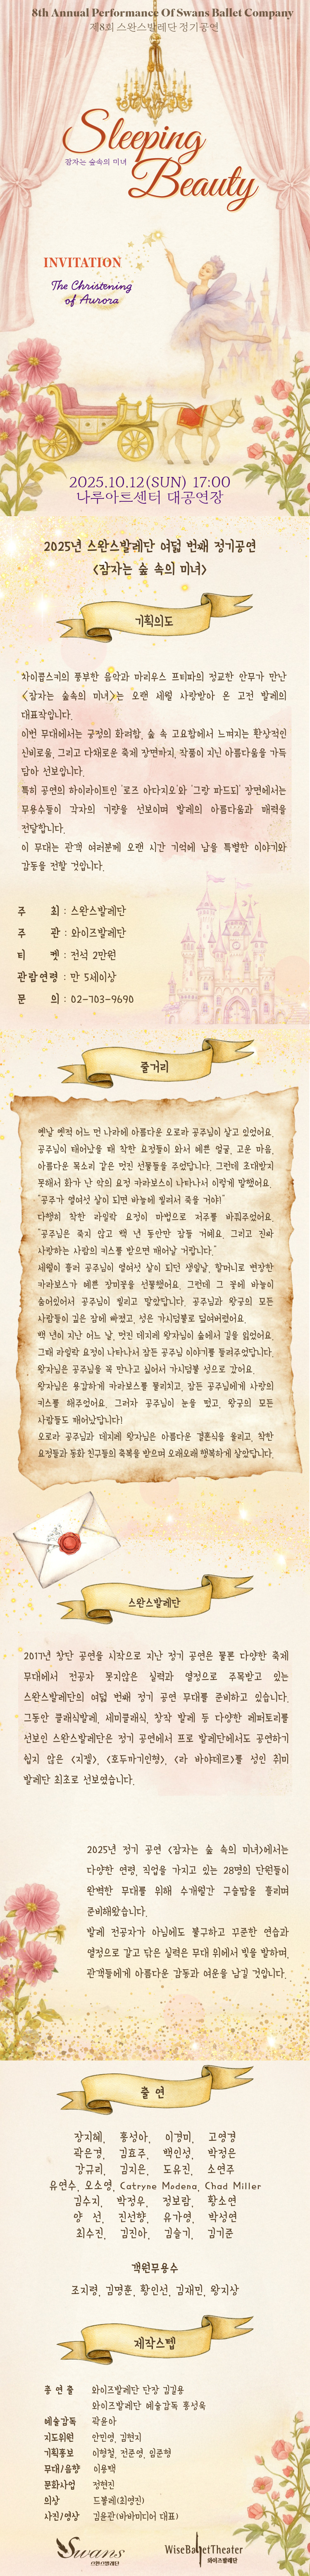 8th Annual Performance Of Swans Ballet Company
제8회 스완스발레단 정기공연
Sleeping
잠자는 숲속의 미녀
Beauty
INVITATION
The Christening
of Aurora
2025.10.12(SUN) 17:00
나루아트센터 대공연장
2025년 스완스발레단 여덟 번째 정기공연
<잠자는 숲 속의 미녀>
기획의도
차이콥스키의 풍부한 음악과 마리우스 프티파의 정교한 안무가 만난
<잠자는 숲속의 미녀>는 오랜 세월 사랑받아 온 고전 발레의
대표작입니다.
이번 무대에서는 궁정의 화려함, 숲 속 고요함에서 느껴지는 환상적인
신비로움, 그리고 다채로운 축제 장면까지, 작품이 지닌 아름다움을 가득
담아 선보입니다.
특히 공연의 하이라이트인 '로즈 아다지오'와 '그랑 파드되' 장면에서는
무용수들이 각자의 기량을 선보이며 발레의 아름다움과 매력을
전달합니다.
이 무대는 관객 여러분께 오랜 시간 기억에 남을 특별한 이야기와
감동을 전할 것입니다.
주 최 : 스완스발레단
주 관 : 와이즈발레단
티 켓 : 전석 2만원
관람연령 : 만 5세이상
문 의 : 02-703-9690
줄거리
옛날 옛적 어느 먼 나라에 아름다운 오로라 공주님이 살고 있었어요.
공주님이 태어났을 때 착한 요정들이 와서 예쁜 얼굴, 고운 마음,
아름다운 목소리 같은 멋진 선물들을 주었답니다. 그런데 초대받지
못해서 화가 난 악의 요정 카라보스가 나타나서 이렇게 말했어요.
"공주가 열여섯 살이 되면 바늘에 찔려서 죽을 거야!"
다행히 착한 라일락 요정이 마법으로 저주를 바꿔주었어요.
"공주님은 죽지 않고 백 년 동안만 잠들 거예요. 그리고 진짜
사랑하는 사람의 키스를 받으면 깨어날 거랍니다."
세월이 흘러 공주님이 열여섯 살이 되던 생일날, 할머니로 변장한
카라보스가 예쁜 장미꽃을 선물했어요. 그런데 그 꽃에 바늘이
숨어있어서 공주님이 찔리고 말았답니다. 공주님과 왕궁의 모든
사람들이 깊은 잠에 빠졌고, 성은 가시덤불로 덮여버렸어요.
백 년이 지난 어느 날, 멋진 데지레 왕자님이 숲에서 길을 잃었어요.
그때 라일락 요정이 나타나서 잠든 공주님 이야기를 들려주었답니다.
왕자님은 공주님을 꼭 만나고 싶어서 가시덤불 성으로 갔어요.
왕자님은 용감하게 카라보스를 물리치고, 잠든 공주님에게 사랑의
키스를 해주었어요. 그러자 공주님이 눈을 떴고, 왕궁의 모든
사람들도 깨어났답니다!
오로라 공주님과 데지레 왕자님은 아름다운 결혼식을 올리고, 착한
요정들과 동화 친구들의 축복을 받으며 오래오래 행복하게 살았답니다.
스완스발레단
2017년 창단 공연을 시작으로 지난 정기 공연은 물론 다양한 축제
무대에서 전공자 못지않은 실력과 열정으로 주목받고 있는
스완스발레단의 여덟 번째 정기 공연 무대를 준비하고 있습니다.
그동안 클래식발레, 세미클래식, 창작 발레 등 다양한 레퍼토리를
선보인 스완스발레단은 정기 공연에서 프로 발레단에서도 공연하기
쉽지 않은 <지젤>, <호두까기인형>, <라 바야데르>를 성인 취미
발레단 최초로 선보였습니다.
2025년 정기 공연 <잠자는 숲 속의 미녀>에서는
다양한 연령, 직업을 가지고 있는 28명의 단원들이
완벽한 무대를 위해 수개월간 구슬땀을 흘리며
준비해왔습니다.
발레 전공자가 아님에도 불구하고 꾸준한 연습과
열정으로 갈고 닦은 실력은 무대 위에서 빛을 발하며,
관객들에게 아름다운 감동과 여운을 남길 것입니다.
출 연
장지혜, 홍성아, 이경미, 고영경
곽은경, 김효주, 백인성, 박정은
강규리, 김지은, 도유진, 소연주
유연수, 오소영, Catryne Modena, Chad Miller
김수지, 박정우, 정보람, 황소연
양 선, 진선향, 유가영, 박성연
최수진, 김진아, 김슬기, 김기준
객원무용수
조지령, 김명훈, 황인선, 김재민, 왕지상
제작스텝
총 연 출 와이즈발레단 단장 김길용
와이즈발레단 예술감독 홍성욱
예술감독 곽윤아
지도위원 안민영, 김현지
기획홍보 이향철, 전준영, 임준형
무대/음향 이용백
문화사업 정현진
의상 드블레(최영진)
사진/영상 김윤관(바바미디어 대표)
Swans
스완스발레단
WiseBalletTheater
와이즈발레단